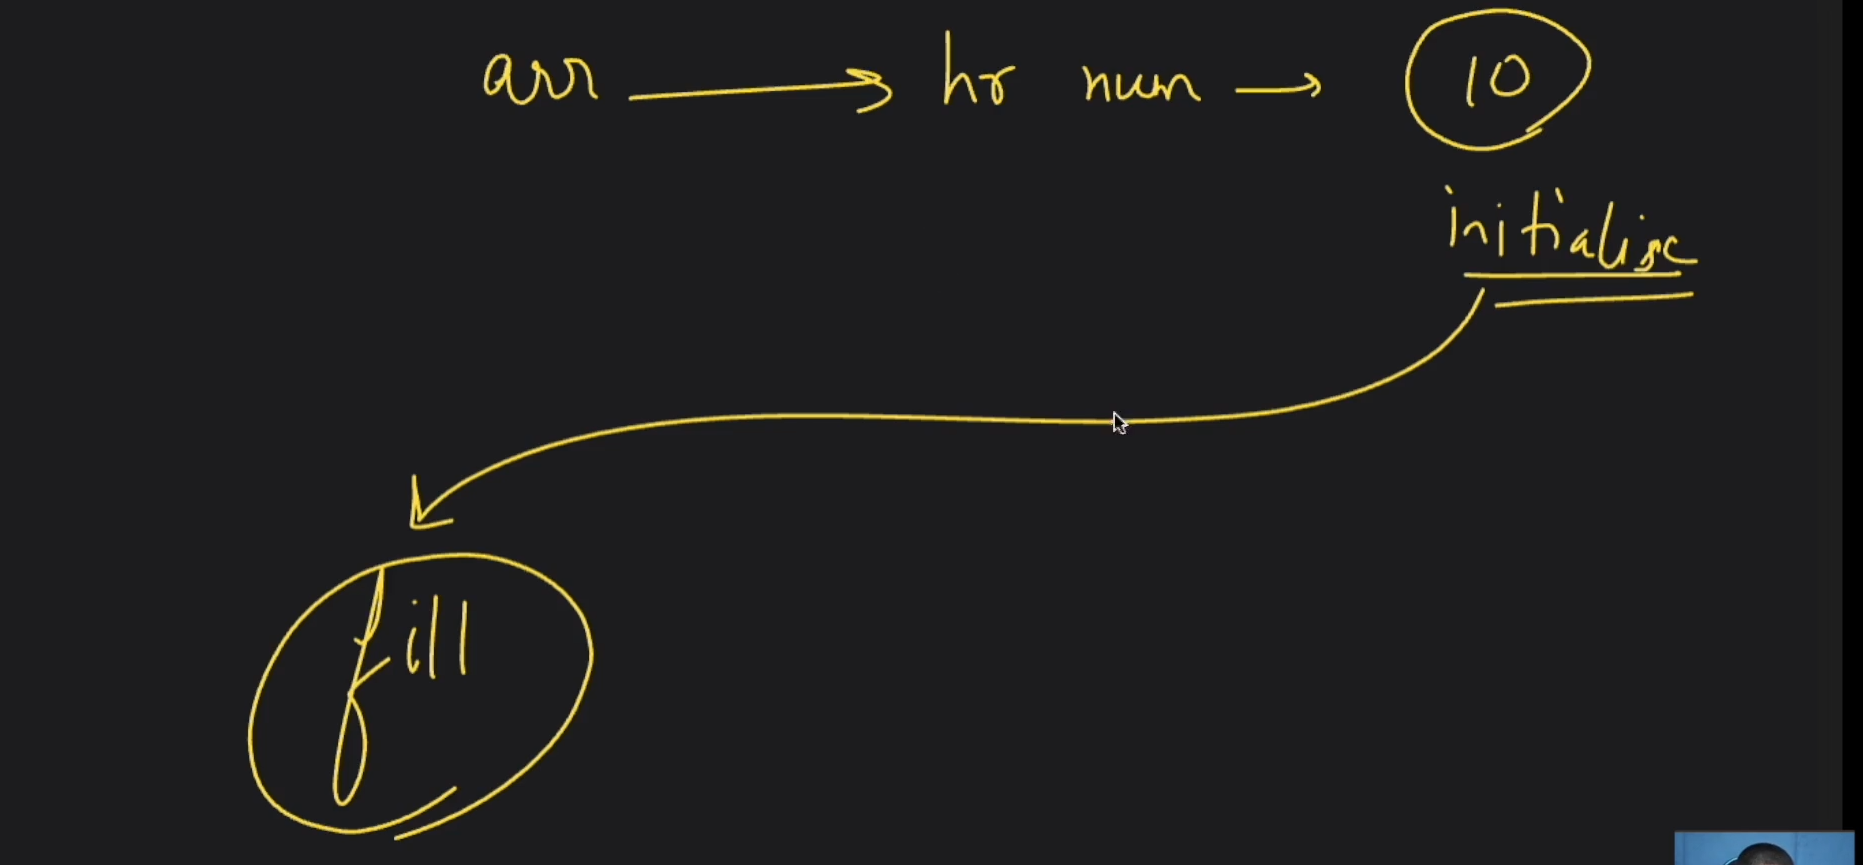 arr → hr num → 10
initialise
fill